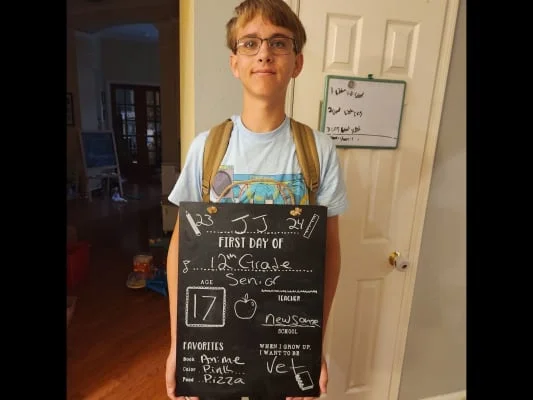 23 JJ 24
FIRST DAY OF
12th Grade
Senior
AGE
17
TEACHER
Newsome
SCHOOL
FAVORITES
Book Anime
Color Pink
Food Pizza
WHEN I GROW UP,
I WANT TO BE
Vet